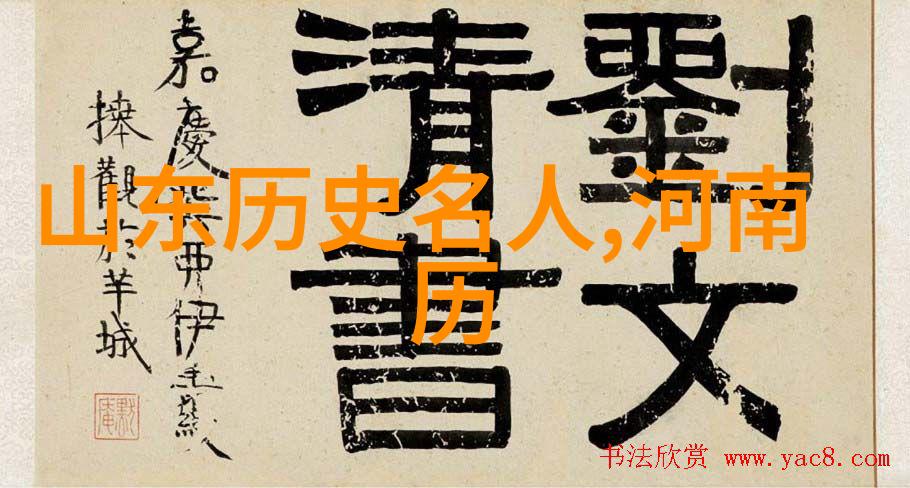 劉文
清書
嘉慶伊秉綬
捧觀於羊城
山东历史名人,河南
历
书法欣赏 www.yac8.com